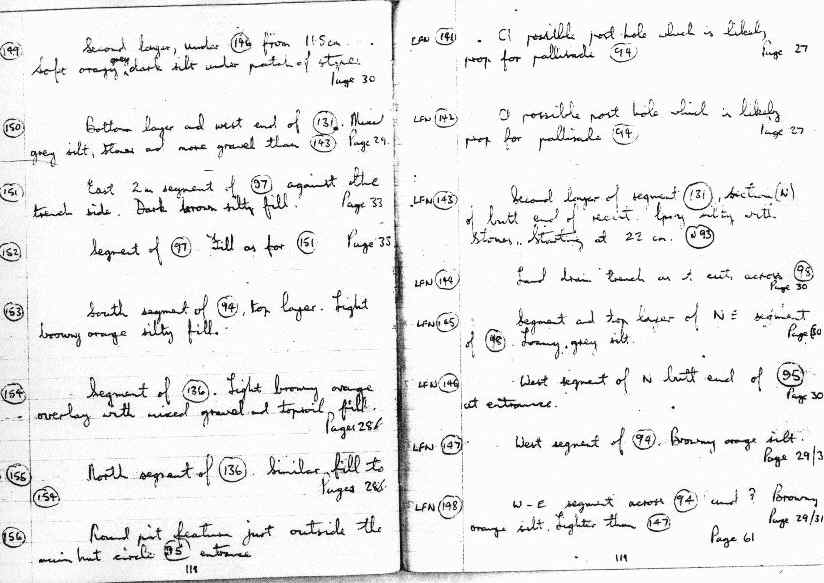 149 Second layer, under 146 from 11.5cm.
Soft orangy grey dark silt under patch of stone.
Page 30
150 Bottom layer and west end of 131. Mixed
grey silt, stones and more gravel than 143 Page 29
151 East 2m segment of 97 against the
trench side. Dark brown silty fill. Page 33
152 Segment of 97. Fill as for 151 Page 33
153 South segment of 94, top layer. Light
browny orange silty fill.
154 Segment of 136. Light browny orange
overlay with mixed gravel and topsoil fill.
Pages 28&
156 North segment of 136. Similar fill to
154 Pages 28&
156 Round pit feature just outside the
main hut circle 95 entrance
118
LFN 141 possible post hole which is likely
prop for pallisade 94 Page 27
LFN 142 possible post hole which is likely
prop for pallisade 94 Page 27
LFN 143 Second layer of segment 131, section (N)
of butt end of silty with
stones. Starting at 22 cm. 93
LFN 144 Land drain trench as it cuts across 95
Page 30
LFN 145 Segment and top layer of NE segment
of 98. Loamy grey silt. Page 30
LFN 146 West segment of N butt end of 95
at entrance. Page 30
LFN 147 West segment of 94. Browny orange silt.
Page 29/3
LFN 148 W-E segment across 94 and ? Browny
orange silt. Lighter than 147 Page 29/31
Page 61
119